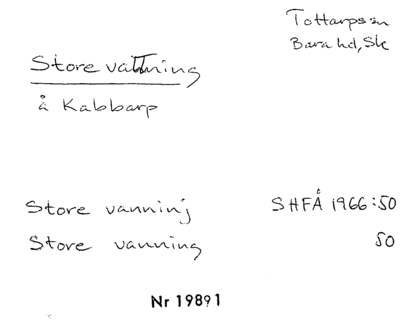 Tottarps sn
Bara hd, Sk
Store vattning
å Kabbarp
Store vanninj SHFÅ 1966:50
Store vanning 50
Nr 19891